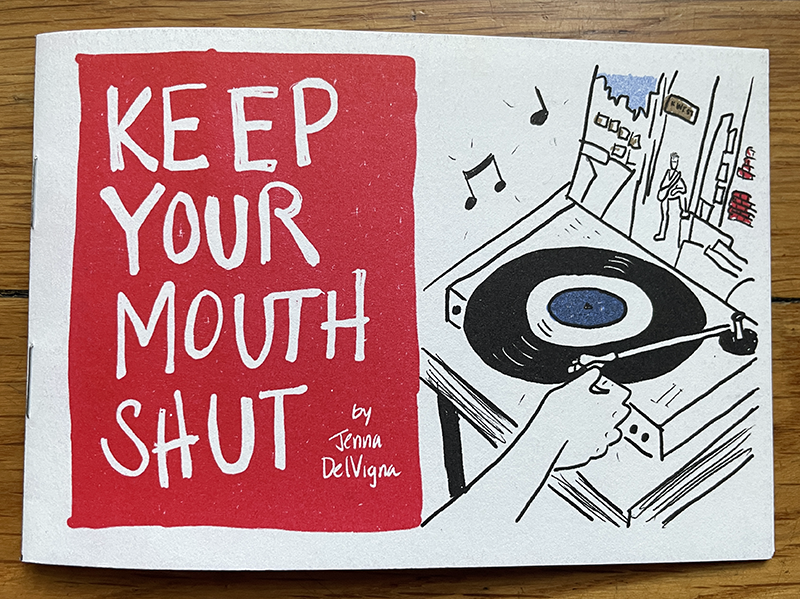 KEEP
YOUR
MOUTH
SHUT
by
Jenna
DelVigna